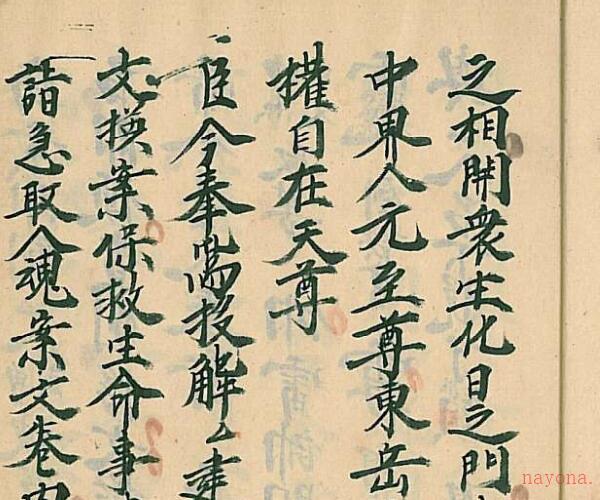 之相開衆生化日之門
中界人元至尊東岳
權自在天尊
一臣今奉為投解厶事
文揆案保救生命事
詣急取人魂案文卷内
nayona.